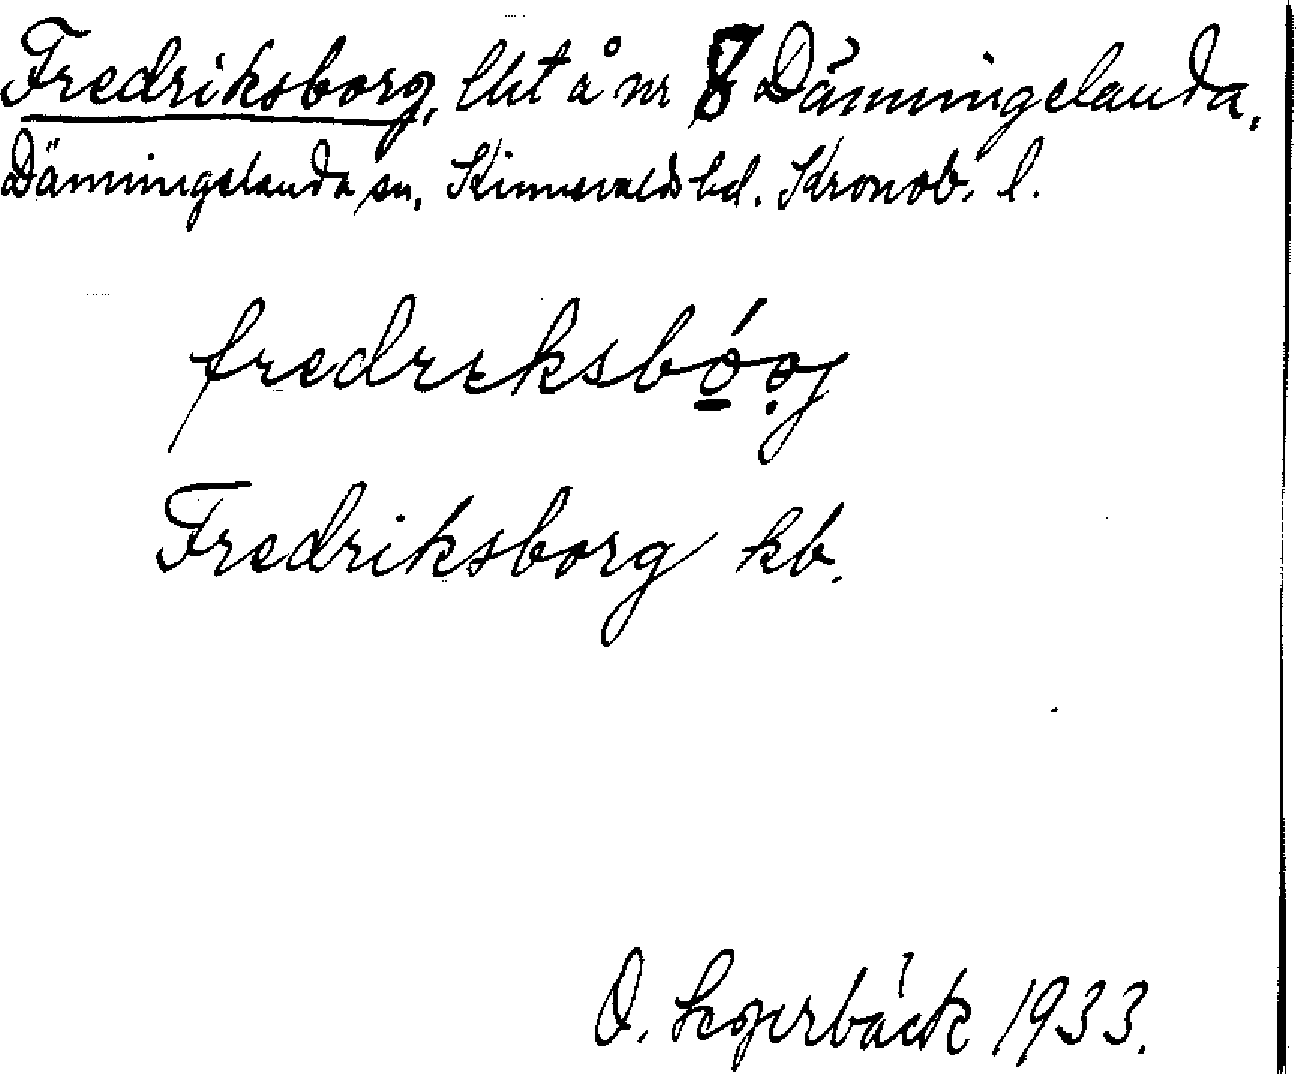 Fredriksborg, lht å nr 8 Dänningelanda,
Dänningelanda sn, Kinnevalds hd. Kronob. l.
fredrɩksbó̠ọg
Fredriksborg kb.
O. 1933.